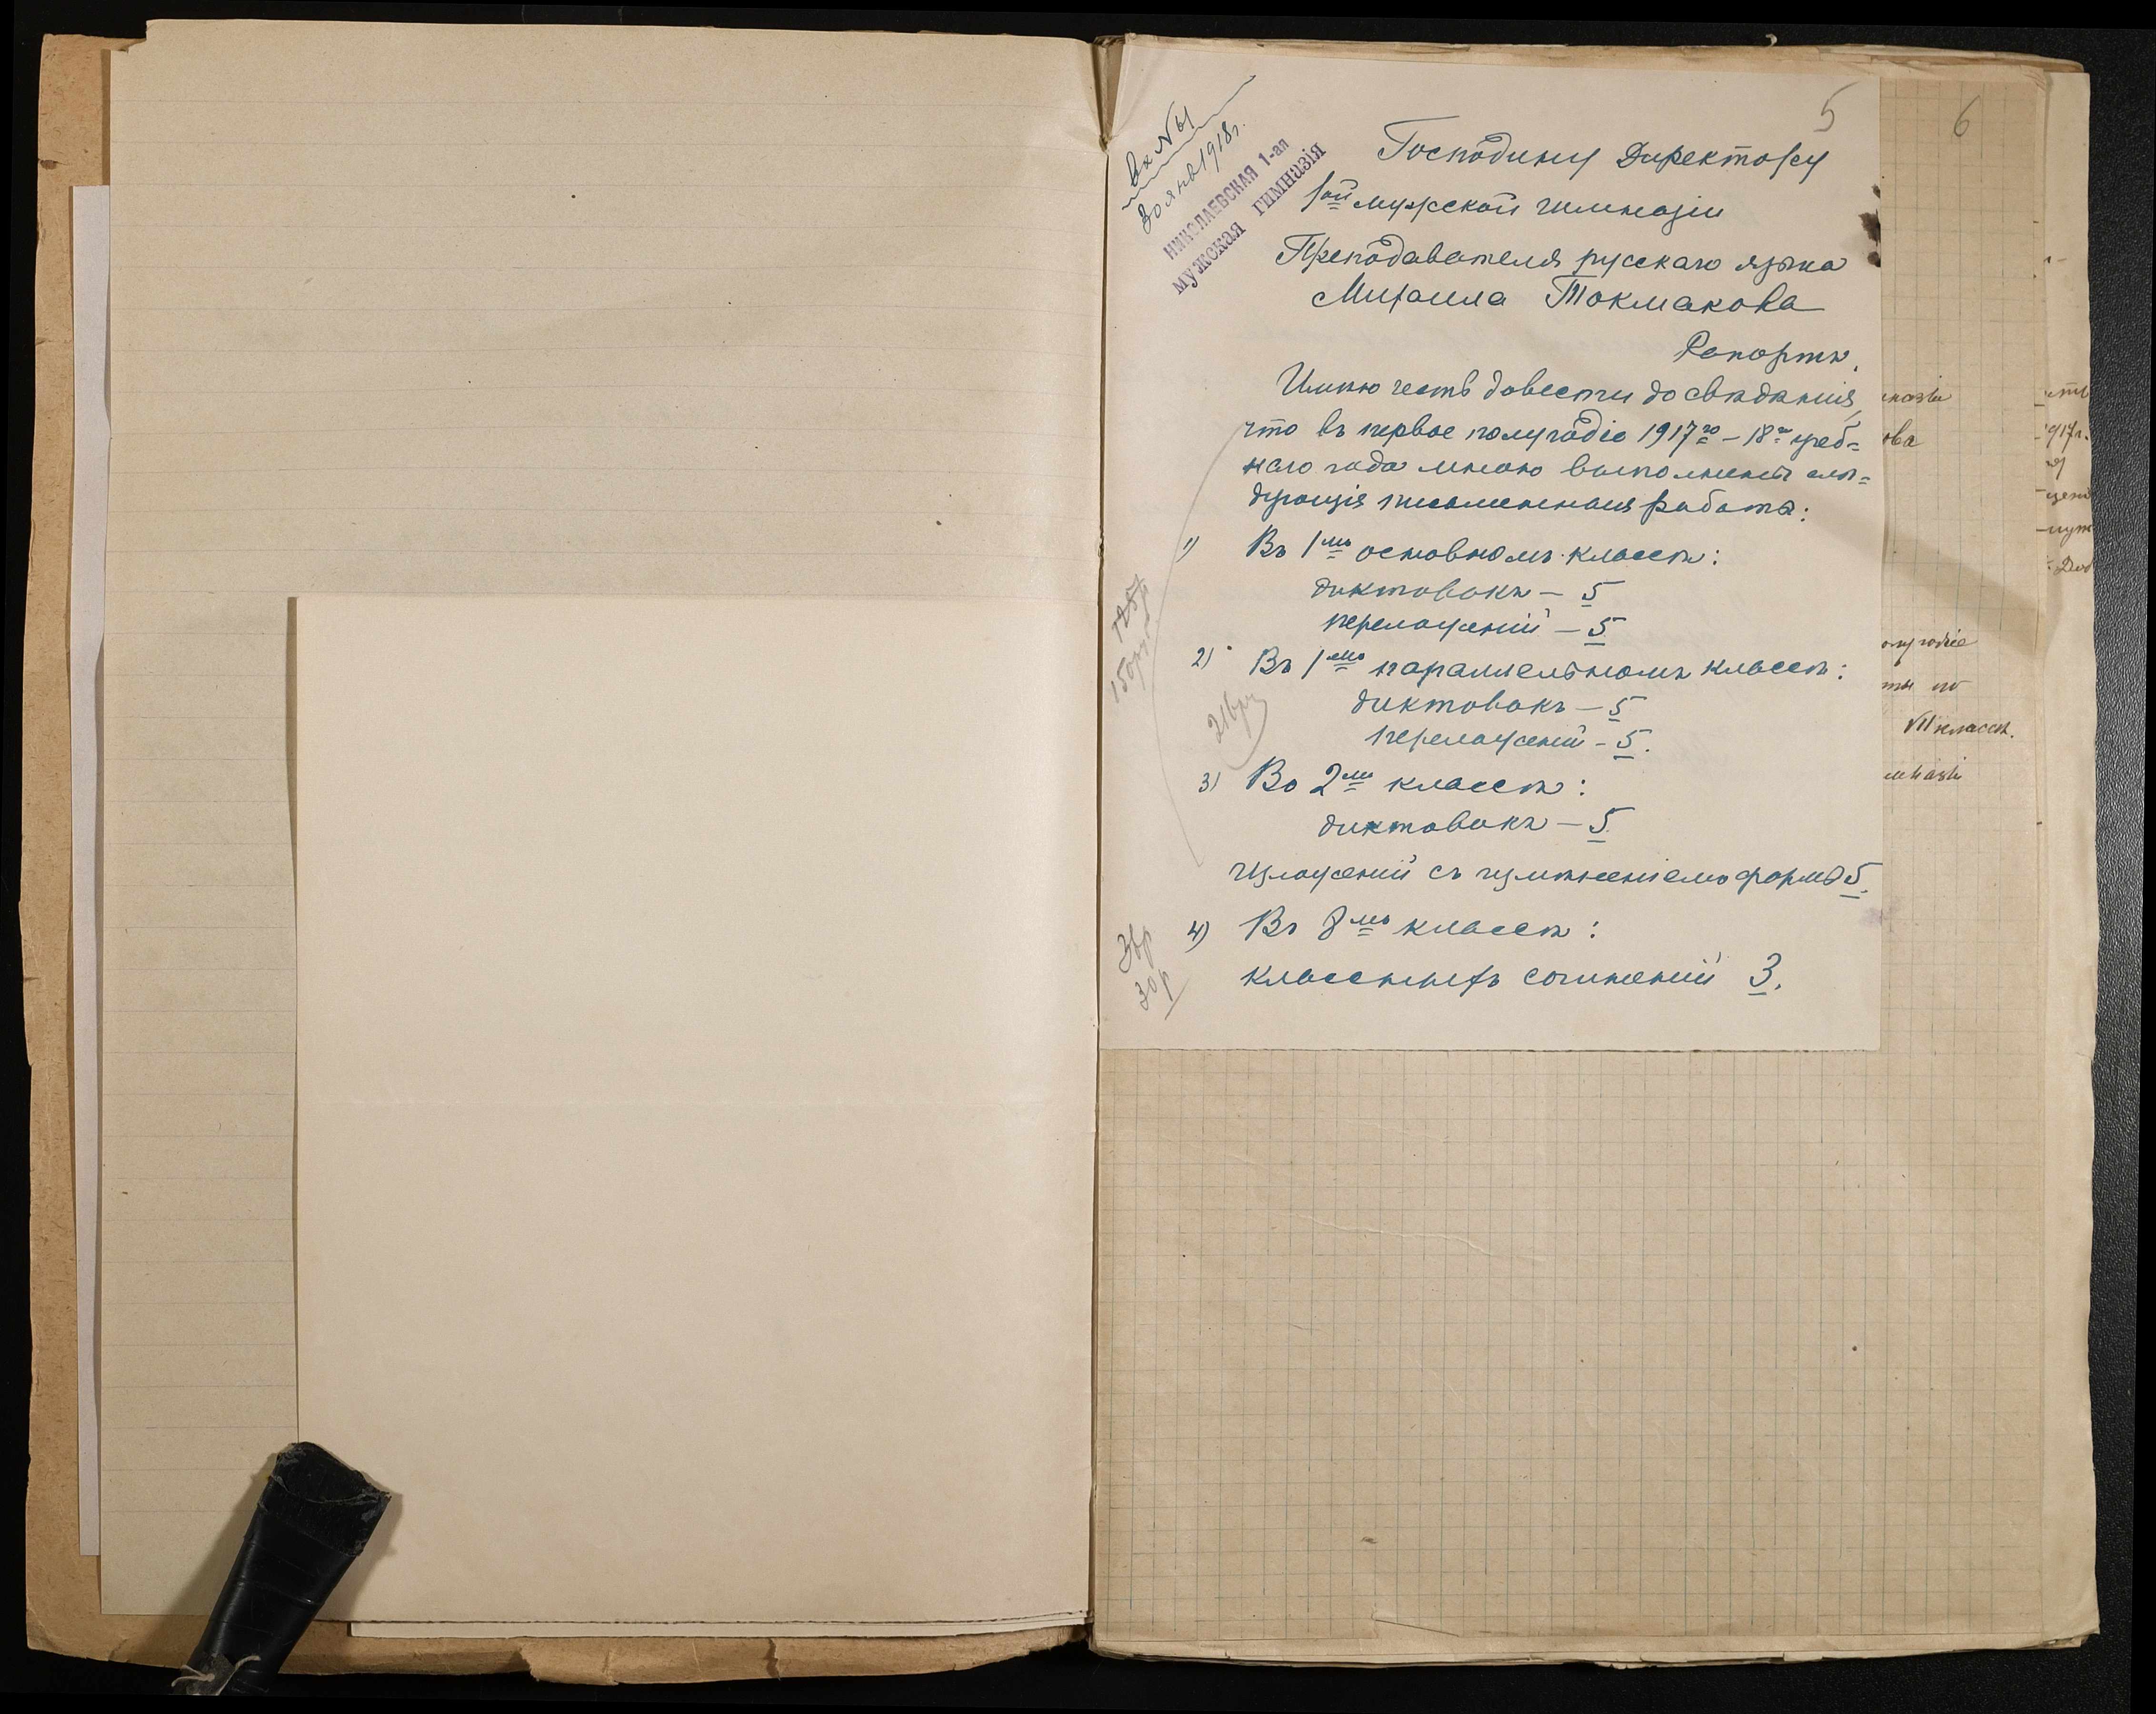 5
6
Вх №61
30 янв 1918г.
НИКОЛАЕВСКАЯ 1-ая
мужская гимназія
Господину Директору
1ой мужской гимназіи
Преподавателя русскаго языка
Михаила Токмакова
Рапортъ.
Имѣю честь довести до свѣдѣнія,
что въ первое полугодіе 1917го – 18го учеб=
наго года мною выполнены слѣ=
дующія письменныя работы:
1) Въ 1мъ основномъ классѣ:
диктовокъ – 5
переложеній – 5
2) Въ 1мъ параллельномъ классѣ:
диктовокъ – 5
переложеній – 5.
3) Во 2мъ классѣ:
диктовокъ – 5.
изложеній съ измѣненіемъ формы 5.
4) Въ 8мъ классѣ:
классныхъ сочиненій 3.
125р
150р
3вр
30р
ова
полугодіе
ты по
VII классѣ.
1917г.